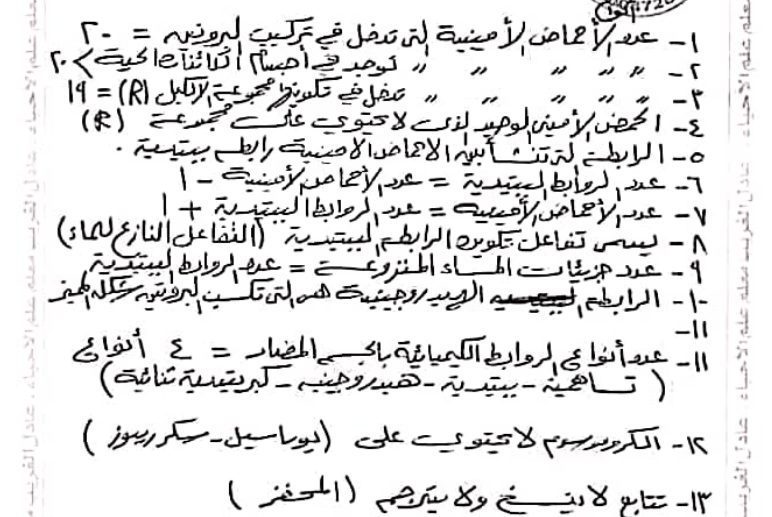 ١- عدد الأحماض الأمينية التى تدخل فى تركيب البروتين = ٢٠
٢- " " " " توجد فى أجسام الكائنات الحية > ٢٠
٣- " " " " تدخل فى تكوينها مجموعة الألكيل (R) = ١٩
٤- الحمض الأمينى الوحيد الذى لا يحتوى على مجموعة (R)
٥- الرابطة التى تنشأ بين الاحماض الامينية رابطة ببتيدية .
٦- عدد الروابط الببتيدية = عدد الأحماض الأمينية - ١
٧- عدد الأحماض الأمينية = عدد الروابط الببتيدية + ١
٨- يسمى تفاعل تكوين الرابطة الببتيدية (التفاعل النازع للماء)
٩- عدد جزيئات الماء المنزوعة = عدد الروابط الببتيدية
١٠- الرابطة الهيدروجينية هى التى تكسب البروتين شكله المميز
١١-
١١- عدد أنواع الروابط الكيميائية بالجسم المضاد = ٤ أنواع
(تساهمية - ببتيدية - هيدروجينية - كبريتيدية ثنائية)
١٢- الكروموسوم لا يحتوى على (يوراسيل - سكر ريبوز)
١٣- تتابع لا ينسخ ولا يترجم (المحفز)
معلم علم الاحياء . عادل الغريب
معلم علم الاحياء . عادل الغريب